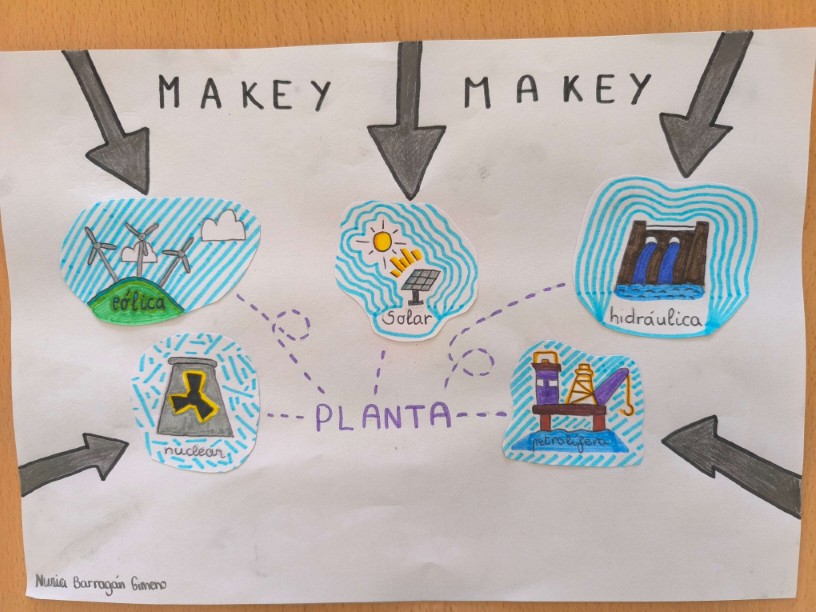 MAKEY MAKEY
eólica
solar
hidráulica
nuclear
PLANTA
petrolífera
Nuria Barragán Gimeno